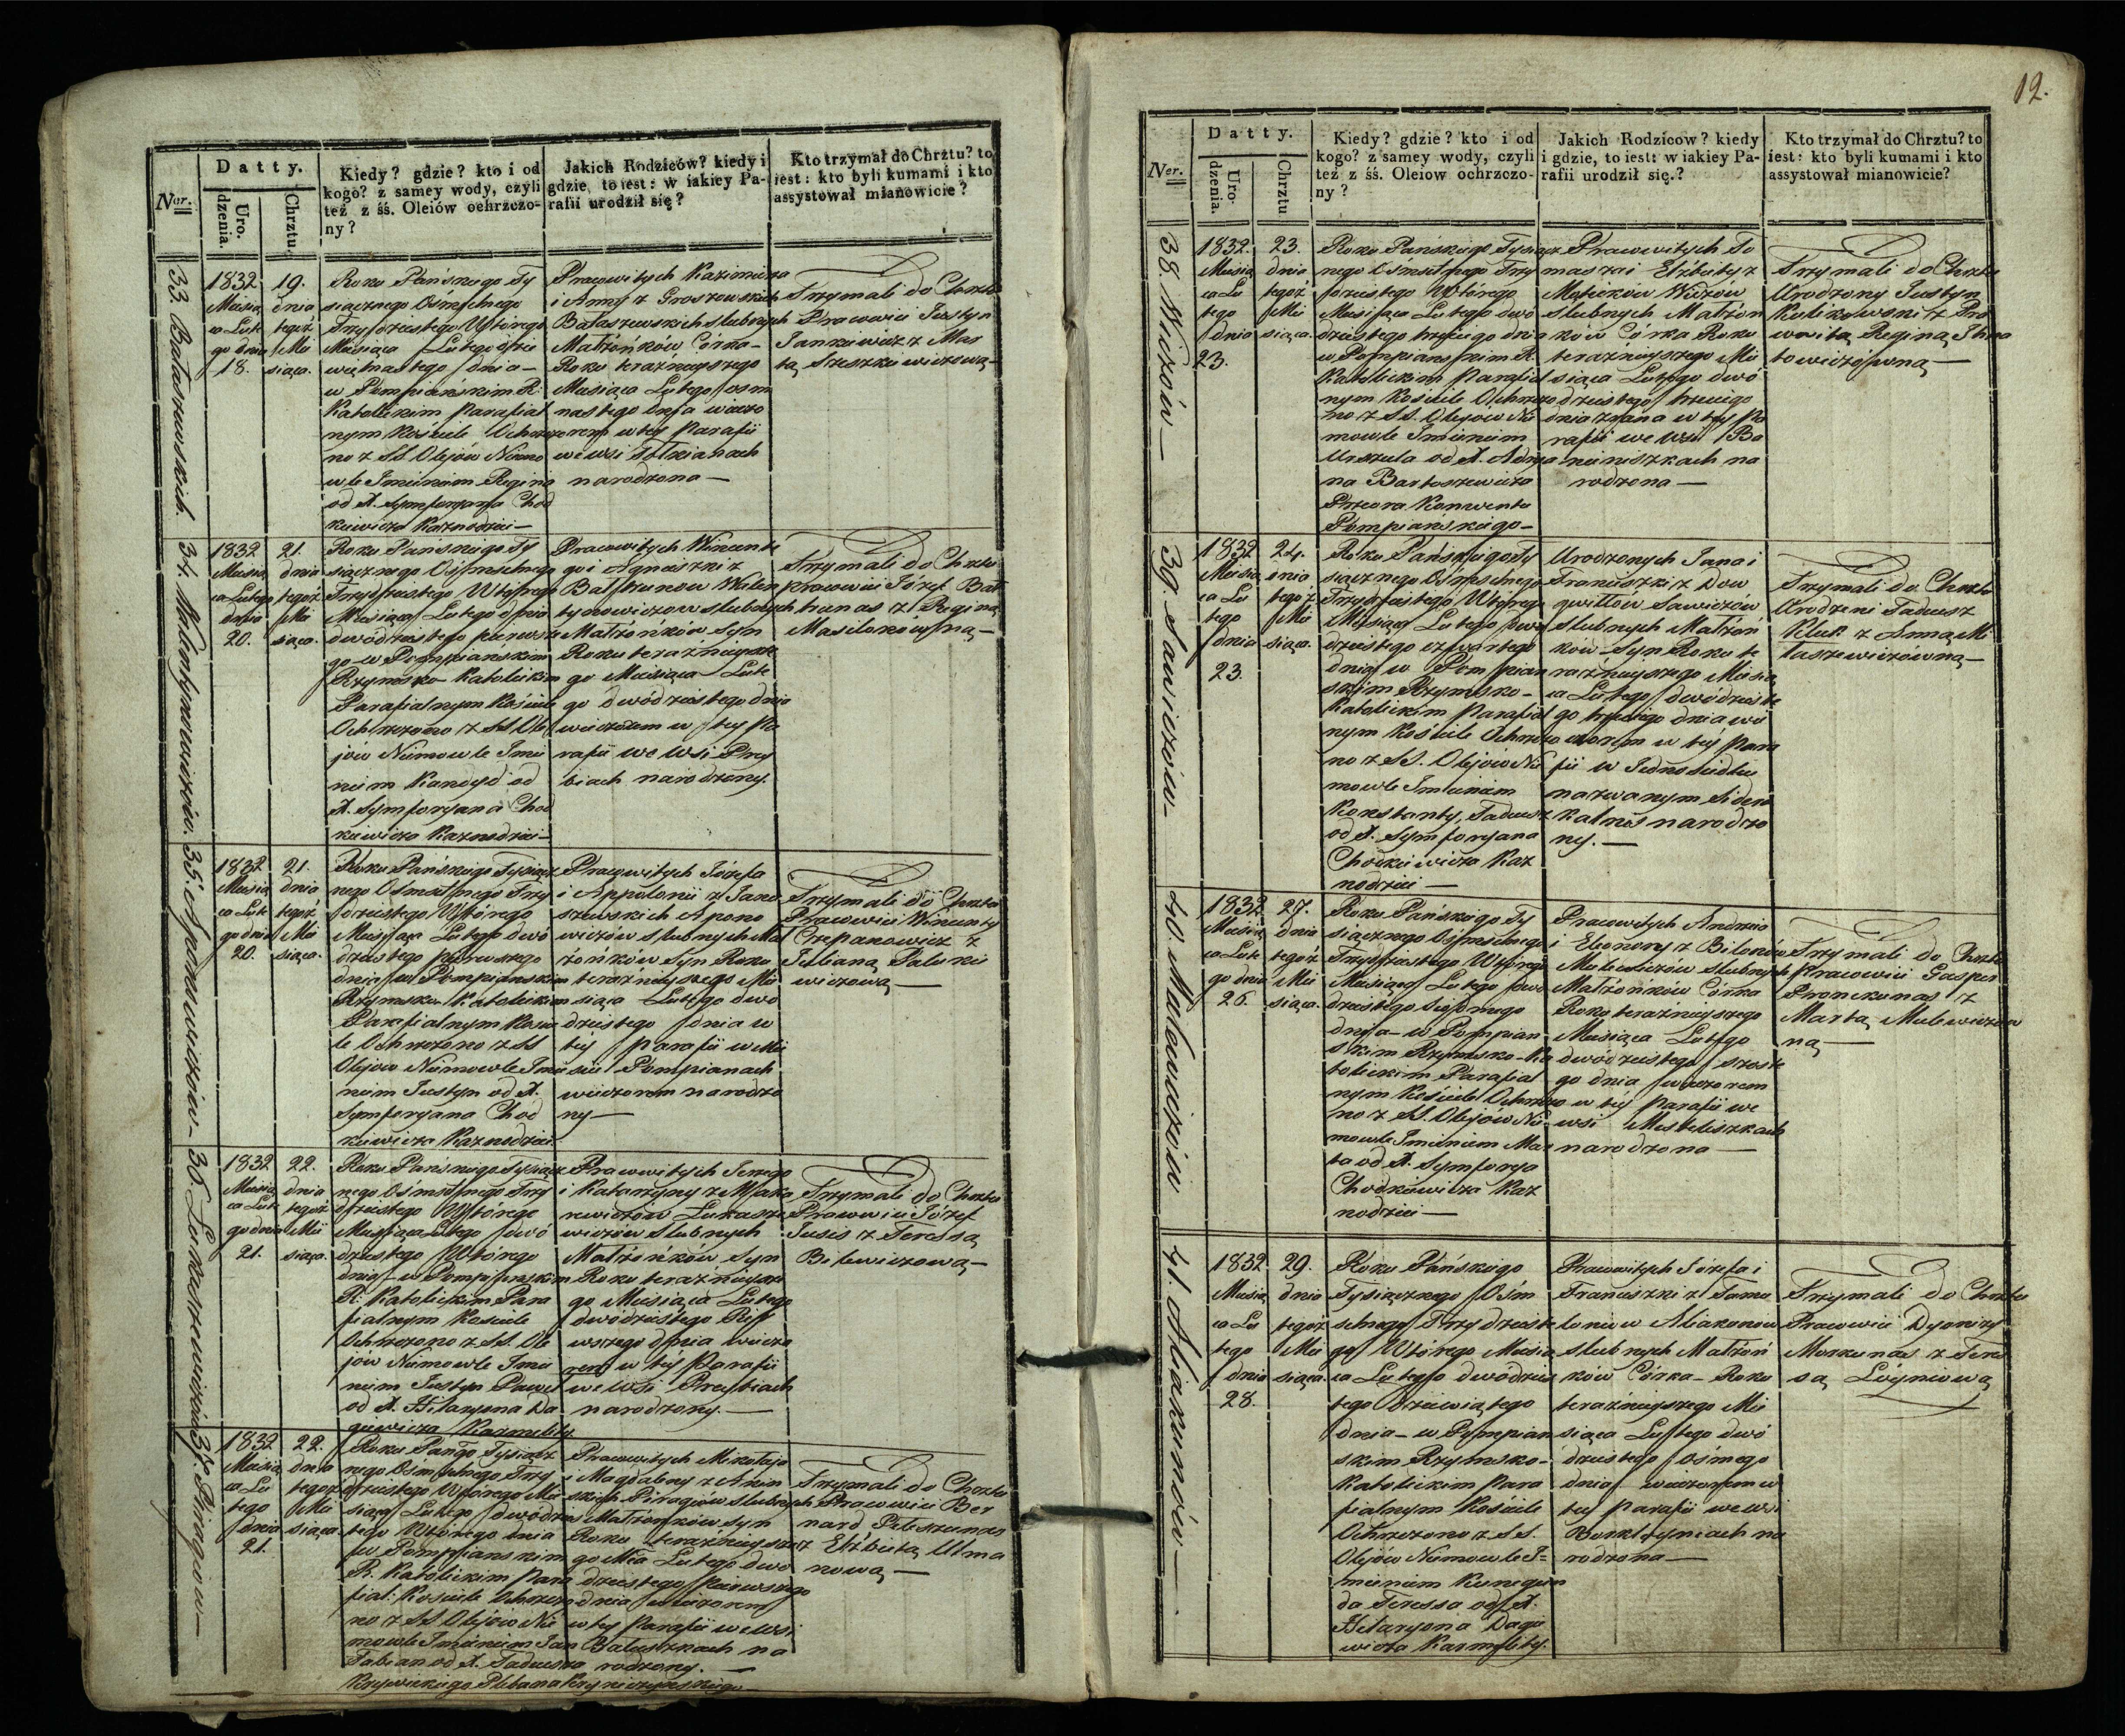 12.
Datty.
Ner.
Uro-
dzenia.
Chrztu.
Kiedy? gdzie? kto i od
kogo? z samey wody, czyli
też z śś. Oleiów ochrzczo-
ny?
Jakich Rodziców? kiedy i
gdzie, to iest: w iakiey Pa-
rafii urodził się?
Kto trzymał do Chrztu? to
iest: kto byli kumami i kto
assystował mianowicie?
33. Bałaszewskich.
1832
Miesią
ca Lute
go dnia
18.
19.
dnia
tegoż
Mie
siąca.
Roku Pańskiego Ty
siącznego Osmsetnego
Trzydziestego Wtórego
Miesiąca Lutego dzie
więtnastego dnia —
w Pompiańskim R:
Katolickim Parafial
nym Kościele Ochrzczo
no z SS. Olejów Niemo
wle Imieniem Regina
od X. Symforyana Chod
kiewicza Kaznodziei —
Pracowitych Kazimierza
i Anny z Groszewskich
Bałaszewskich slubnych
Małżonków Córka —
Roku teraźnieyszego
Miesiąca Lutego osm
nastego dnia wieczo
rem w tey Parafii
we wsi
narodzona —
Trzymali do Chrztu
Pracowici Justyn
Jankiewicz z Mar
tą Sreszkiewiczową —
34. Walentynowiczów.
1832
Miesią
ca Lutego
dnia
20.
21.
dnia
tegoż
Mie
siąca.
Roku Pańskiego Ty
siącznego Osmsetnego
Trzydziestego Wtórego
Miesiąca Lutego dnia
dwódziestego pierwsze
go w Pompiańskim
Rzymsko Katolickim
Parafialnym Kościele
Ochrzczono z SS. Ole
jów Niemowle Imie
niem Kandyd od
X. Symforyana Chod
kiewicza Kaznodziei —
Pracowitych Wincente
go i Agnieszki z
Bałtrunow Walen
tynowiczow slubnych
Małżonków Syn
Roku teraźnieysze
go Miesiąca Lute
go dwódziestego dnia
wieczorem w tey Pa
rafii we wsi Prey
biach narodzony.
Trzymali do Chrztu
Pracowici Józef Bał
trunas z Reginą
Masilonówną —
35. Aponowiczów —
1832
Miesią
ca Lute
go dnia
20.
21.
dnia
tegoż
Mie
siąca.
Roku Pańskiego Tysiącz
nego Ośmsetnego Trzy
dziestego Wtórego
Miesiąca Lutego dwó
dziestego pierwszego
dnia w Pompiańskim
Rzymsko Katolickim
Parafialnym Koscie
le Ochrzczono z SS
Olejow Niemowle Imie
niem Justyn od X.
Symforyana Chod
kiewicza Kaznodziei.
Pracowitych Józefa
i Appolonii z Jano
szewskich Apono
wiczów slubnych Mał
żonków Syn Roku
teraźnieyszego Mie
siąca Lutego dwó
dziestego dnia w
tey Parafii w Mie
ście Pompianach
wieczorem narodzo
ny —
Trzymali do Chrztu
Pracowici Wincenty
Czepanowicz z
Julianą Palukie
wiczową —
36. Łukaszewiczów
1832
Miesią
ca Lute
go dnia
21.
22.
dnia
tegoż
Mie
siąca.
Roku Pańskiego Tysiącz
nego Ośmsetnego Trzy
dziestego Wtórego
Miesiąca Lutego dwó
dziestego Wtórego
dnia — w Pompiańskim
R: Katolickim Para
fialnym Kościele
Ochrzczono z SS. Ole
jów Niemowle Imie
niem Justyn Paweł
od X. Hilaryona Da
giewicza Karmelity
Pracowitych Jerzego
i Katarzyny z Maka
rewiczow Łukasze
wiczów slubnych
Małżonków Syn
Roku teraźnieysze
go Miesiąca Lutego
dwódziestego Pier
wszego dnia wieczo
rem w tey Parafii
we wsi Preybiach
narodzony. —
Trzymali do Chrztu
Pracowici Józef
Jusis z Teressą
Bilewiczową —
37. Piragiow —
1832
Miesią
ca Lu
tego
dnia
21.
22.
dnia
tegoż
Mie
siąca
Roku Pańgo Tysiącz
nego Ośmsetnego Trzy
dziestego Wtórego Mie
siąca Lutego dwódzies
tego Wtórego dnia
w Pompiańskim
R. Katolickim Para
fial: Kościele Ochrzczo
no z SS Olejow Nie
mowle Imieniem Jan
Fabian od X. Tadeusza
Pracowitych Mikołaja
i Magdaleny z
Piragiow slubnych
Małżonków Syn
Roku teraźnieysze
go Mca Lutego dwó
dziestego pierwszego
dnia wieczorem
w tey Parafii we wsi
Bałaszkach na
rodzony. —
Trzymali do Chrztu
Pracowici Ber
nard
z Elżbietą Ulma
nową —
Datty.
Ner.
Uro-
dzenia.
Chrztu
Kiedy? gdzie? kto i od
kogo? z samey wody, czyli
też z śś. Oleiow ochrzczo-
ny?
Jakich Rodzicow? kiedy
i gdzie, to iest: w iakiey Pa-
rafii urodził się.?
Kto trzymał do Chrztu? to
iest: kto byli kumami i kto
assystował mianowicie?
38. Wiczów —
1832.
Miesią
ca Lu
tego
dnia
23.
23.
dnia
tegoż
Mie
siąca.
Roku Pańskiego Tysiącz
nego Osmsetnego Trzy
dziestego Wtórego
Miesiąca Lutego dwó
dziestego trzeciego dnia
w Pompiańskim R.
Katolickim Parafial
nym Kościele Ochrzczo
no z SS. Olejów Nie
mowle Imieniem
Urszula od X. Adrya
na Bartoszewicza
Przeora Konwentu
Pompiańskiego —
Pracowitych To
masza i Elżbiety z
Wiczów
slubnych Małżon
ków Córka Roku
teraznieyszego Mie
siąca Lutego dwó
dziestego trzeciego
dnia zrana w tey Pa
rafii we wsi Ba
nieniszkach na
rodzona —
Trzymali do Chrztu
Urodzony Justyn
Kulikowski z Pra
cowitą Reginą
towiczówną —
39. Sawiczów —
1832
Miesią
ca Lu
tego
dnia
23.
24.
dnia
tegoż
Mie
siąca.
Roku Pańskiego Ty
siącznego Osmsetnego
Trzydziestego Wtórego
Miesiąca Lutego dwó
dziestego czwartego
dnia w Pompian
skim Rzymsko-
Katolickim Parafial
nym Kościele Ochrzczo
no z SS. Olejów Nie
mowle Imieniem
Konstanty, Tadeusz
od X. Symforyana
Chodkiewicza Kaz
nodziei —
Urodzonych Jana i
Franciszki z Dow
gwiłłów Sawiczów
slubnych Małżon
ków Syn Roku te
raźnieyszego Miesią
ca Lutego dwódzieste
go trzeciego dnia wie
czorem w tey Para
fii w Jednosiedliu
nazwanym Sidero
kalnis narodzo
ny. —
Trzymali do Chrztu
Urodzeni Tadeusz
Kluk z Anną Mi
łaszewiczówną —
40. Malewiczów
1832
Miesią
ca Lute
go dnia
26.
27.
dnia
tegoż
Mie
siąca.
Roku Pańskiego Ty
siącznego Ośmsetnego
Trzydziestego Wtórego
Miesiąca Lutego dwó
dziestego siódmego
dnia — w Pompian
skim Rzymsko-Ka
tolickim Parafial
nym Kościele Ochrzczo
no z SS. Olejów Nie
mowle Imieniem Mar
ta od X. Symforya
Chodkiewicza Kaz
nodziei —
Pracowitych Andrzeia
i Eleonory z Bilonów
Malewiczów slubnych
Małżonków Córka
Roku teraznieyszego
Miesiąca Lutego
dwódziestego szoste
go dnia wieczorem
w tey Parafii we
wsi Misteliszkach
narodzona —
Trzymali do Chrztu
Pracowici Gasper
Pronckunas z
Martą Malewiczów
ną —
41. Aliakunów —
1832.
Miesią
ca Lu
tego
dnia
28.
29.
dnia
tegoż
Mie
siąca.
Roku Pańskiego
Tysiącznego Ośm
setnego Trzydzieste
go Wtórego Miesią
ca Lutego dwódzies
tego dziewiątego
dnia — w Pompian
skim Rzymsko-
Katolickim Para
fialnym Kościele
Ochrzczono z SS.
Olejów Niemowle I=
mieniem Kunegun
da Teressa od X.
Hilaryona Dagie
wicza Karmelity.
Pracowitych Józefa i
Franciszki z Tamu
loniow Aliakonow
slubnych Małżon
ków Córka — Roku
teraźnieyszego Mie
siąca Lutego dwó
dziestego ósmego
dnia wieczorem w
tey Parafii we wsi
Borklojniach na
rodzona —
Trzymali do Chrztu
Pracowici Dyonizy
Morkunas z Teres
są Łóyniową